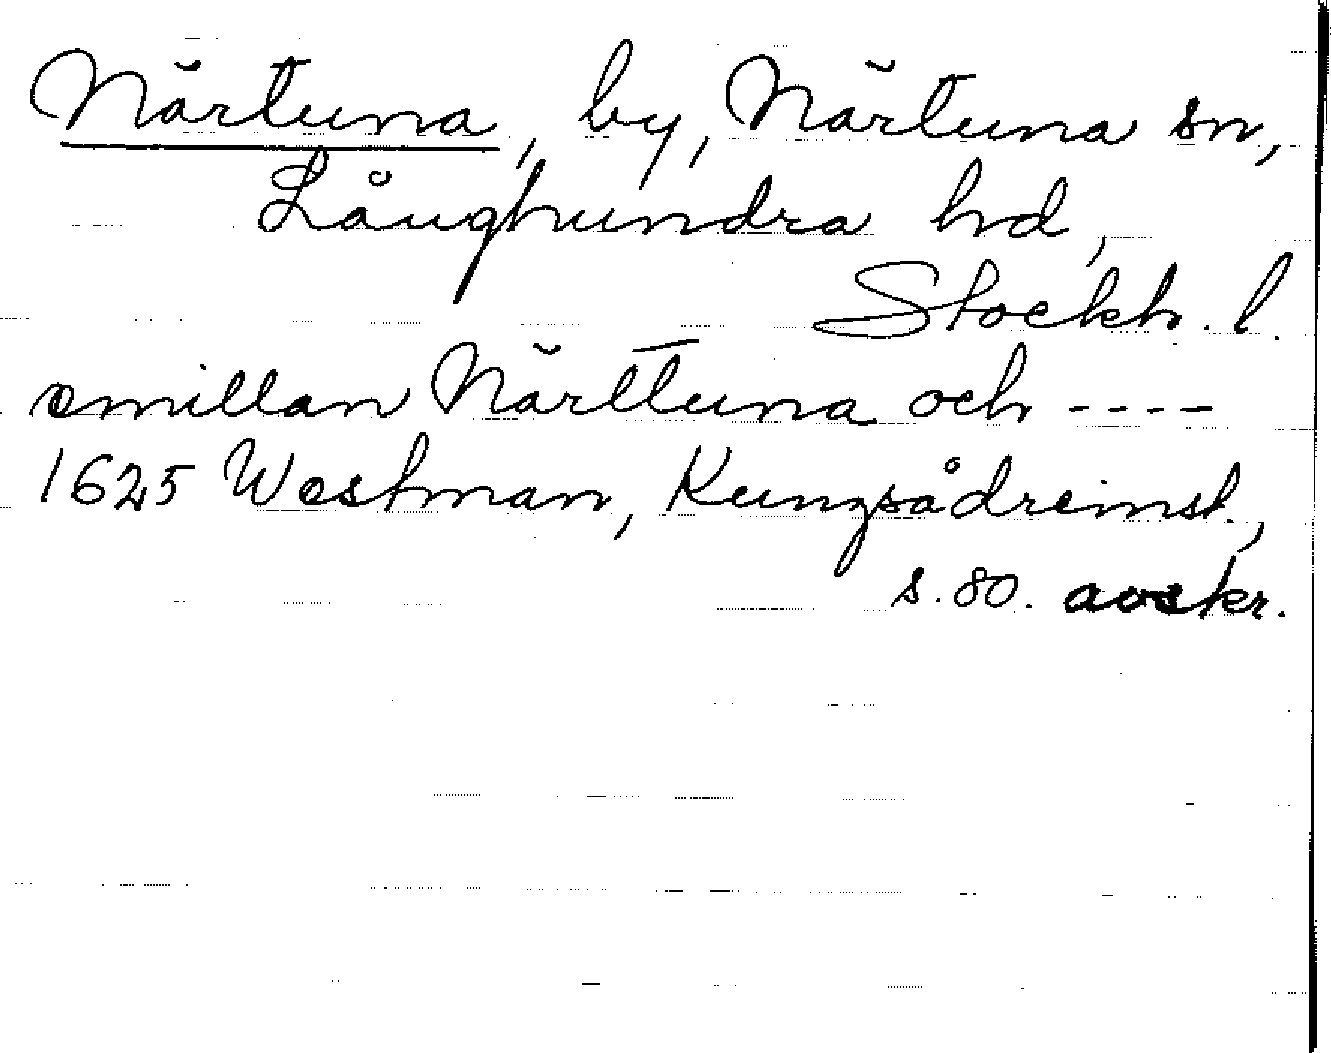 Närtuna, by, Närtuna sn,
Långhundra hd,
Stockh. l.
emillan Närttuna och ----
1625 Westman, Kungsådreinst.,
s. 80. avskr.